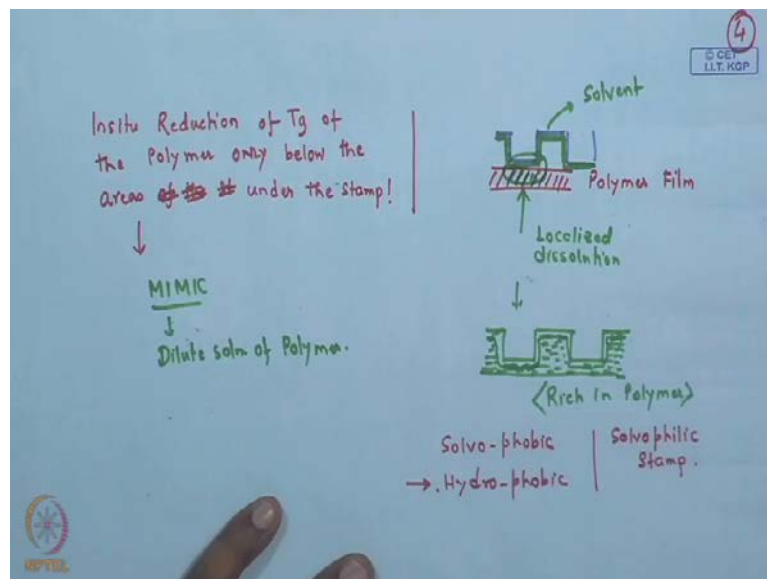 4
© CET
I.I.T. KGP
Insitu Reduction of Tg of
the Polymer only below the
areas of under the stamp!
MIMIC
Dilute soln of Polymer.
Solvent
Polymer Film
Localized
dissolution
<Rich in Polymer>
Solvo-phobic
→ . Hydro-phobic
Solvophilic
Stamp.
NPTEL